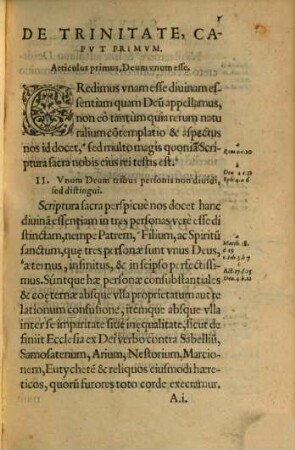 DE TRINITATE, CA-
PVT PRIMVM.
Articulus primus, Deum vnum esse.
CRedimus vnam esse diuinam es
sentiam quam Deũ appellamus,
non eò tantùm quia rerum natu
ralium cõtemplatio & aspectus
nos id docet, sed multo magis quoniã Scri-
ptura sacra nobis eius rei testis est.
II. Vnum Deum tribus personis non diuidi,
sed distingui.
Scriptura sacra perspicuè nos docet hanc
diuinã essentiam in tres personas verè esse di
stinctam, nempe Patrem, Filium, ac Spiritũ
sanctum, quę tres personæ sunt vnus Deus,
æternus, infinitus, & in seipso perfectissi-
mus. Súntque hæ personæ consubstantiales
& coæternæ absque vlla proprietatum aut re
lationum confusione, itémque absque vlla
inter se imparitate siue inequalitate, sicut de
finiit Ecclesia ex Dei verbo contra Sabelliũ,
Samosatenum, Arium, Nestorium, Marcio-
nem, Eutycheté & reliquos eiusmodi hære-
ticos, quorũ furores toto corde execramur.
A.i.